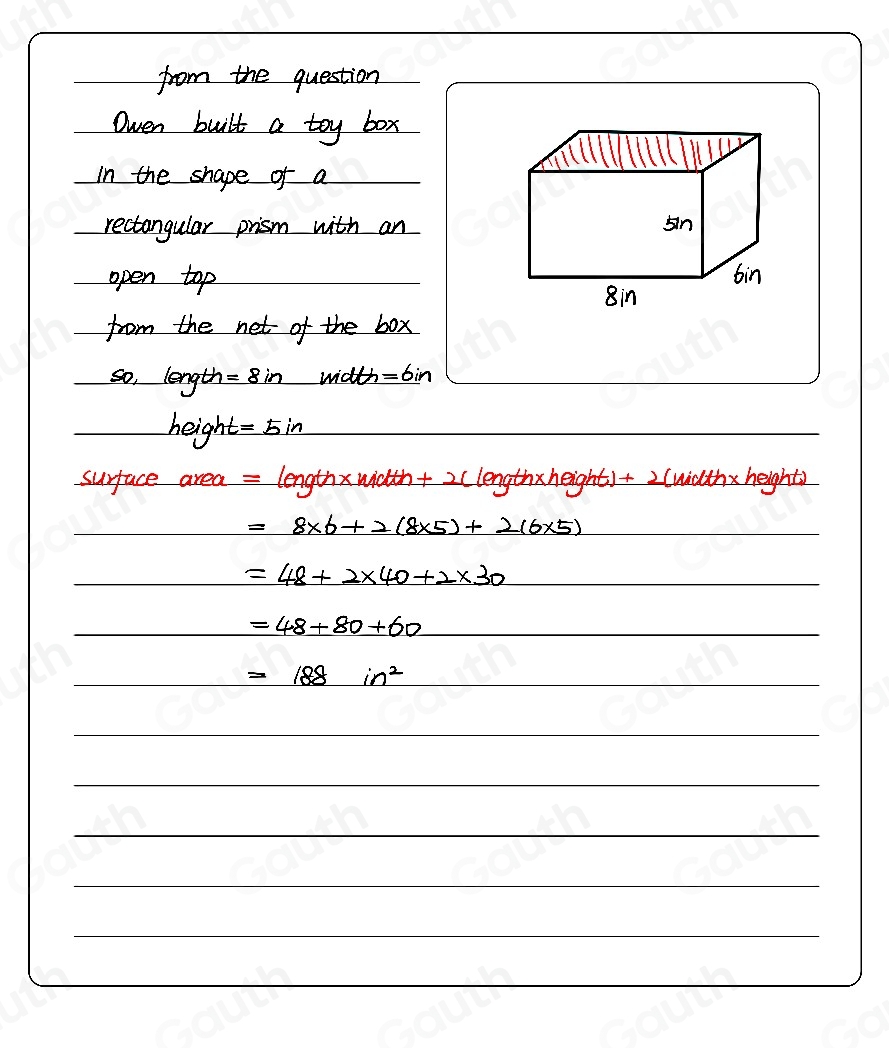 from the question
Owen built a toy box
In the shape of a
rectangular prism with an
open top
from the net of the box
so, length = 8 in width = 6in
height = 5 in
5in
6in
8in
surface area = length×width + 2(length×height) + 2(width×height)
= 8×6 + 2(8×5) + 2(6×5)
= 48 + 2×40 + 2×30
= 48 + 80 + 60
= 188 in²
Gauth